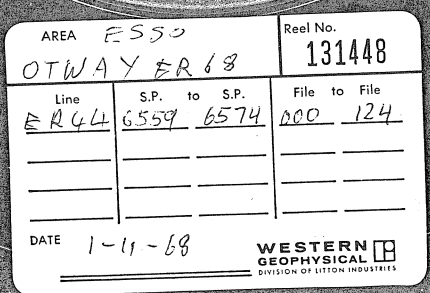 AREA ESSO
OTWAY ER68
Reel No.
131448
Line S.P. to S.P. File to File
ER44 6559 6574 000 124
DATE 1-11-68
WESTERN
GEOPHYSICAL
DIVISION OF LITTON INDUSTRIES